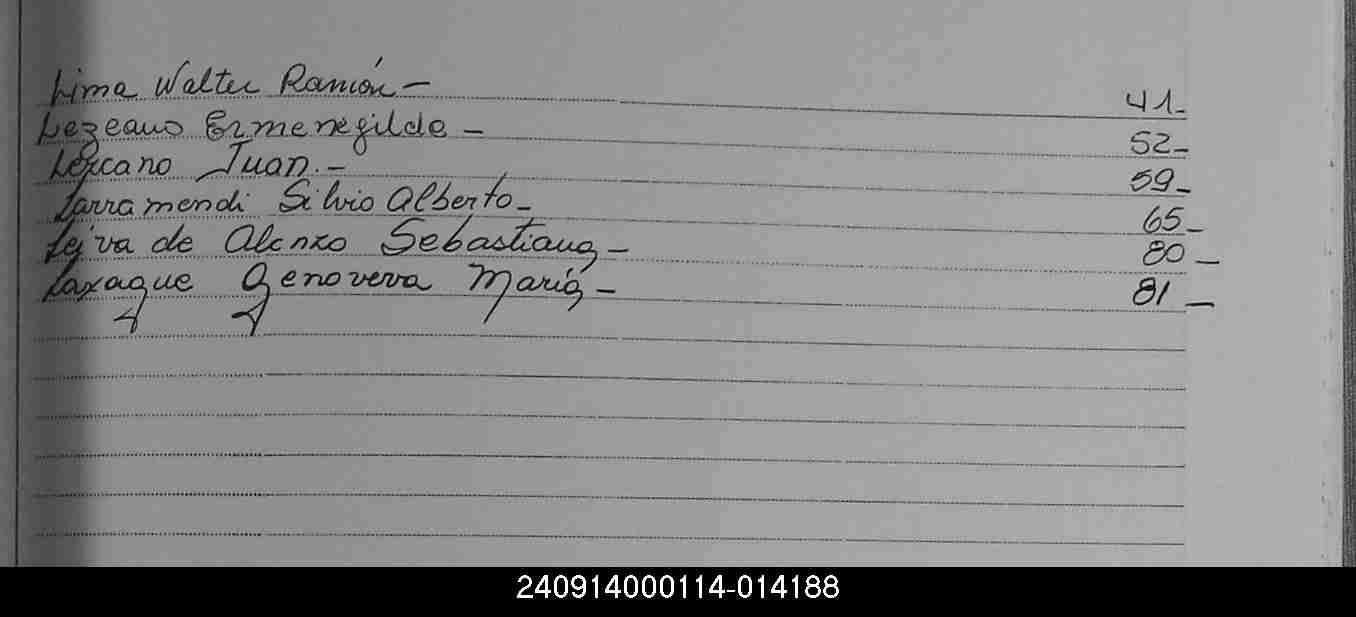 Lima Walter Ramón - 41-
Lezcano Ermenegildo - 52-
Lezcano Juan. - 59-
Larramendi Silvio Alberto - 65-
Leiva de Alonzo Sebastiana - 80-
Laxague Genoveva María - 81-
240914000114-014188